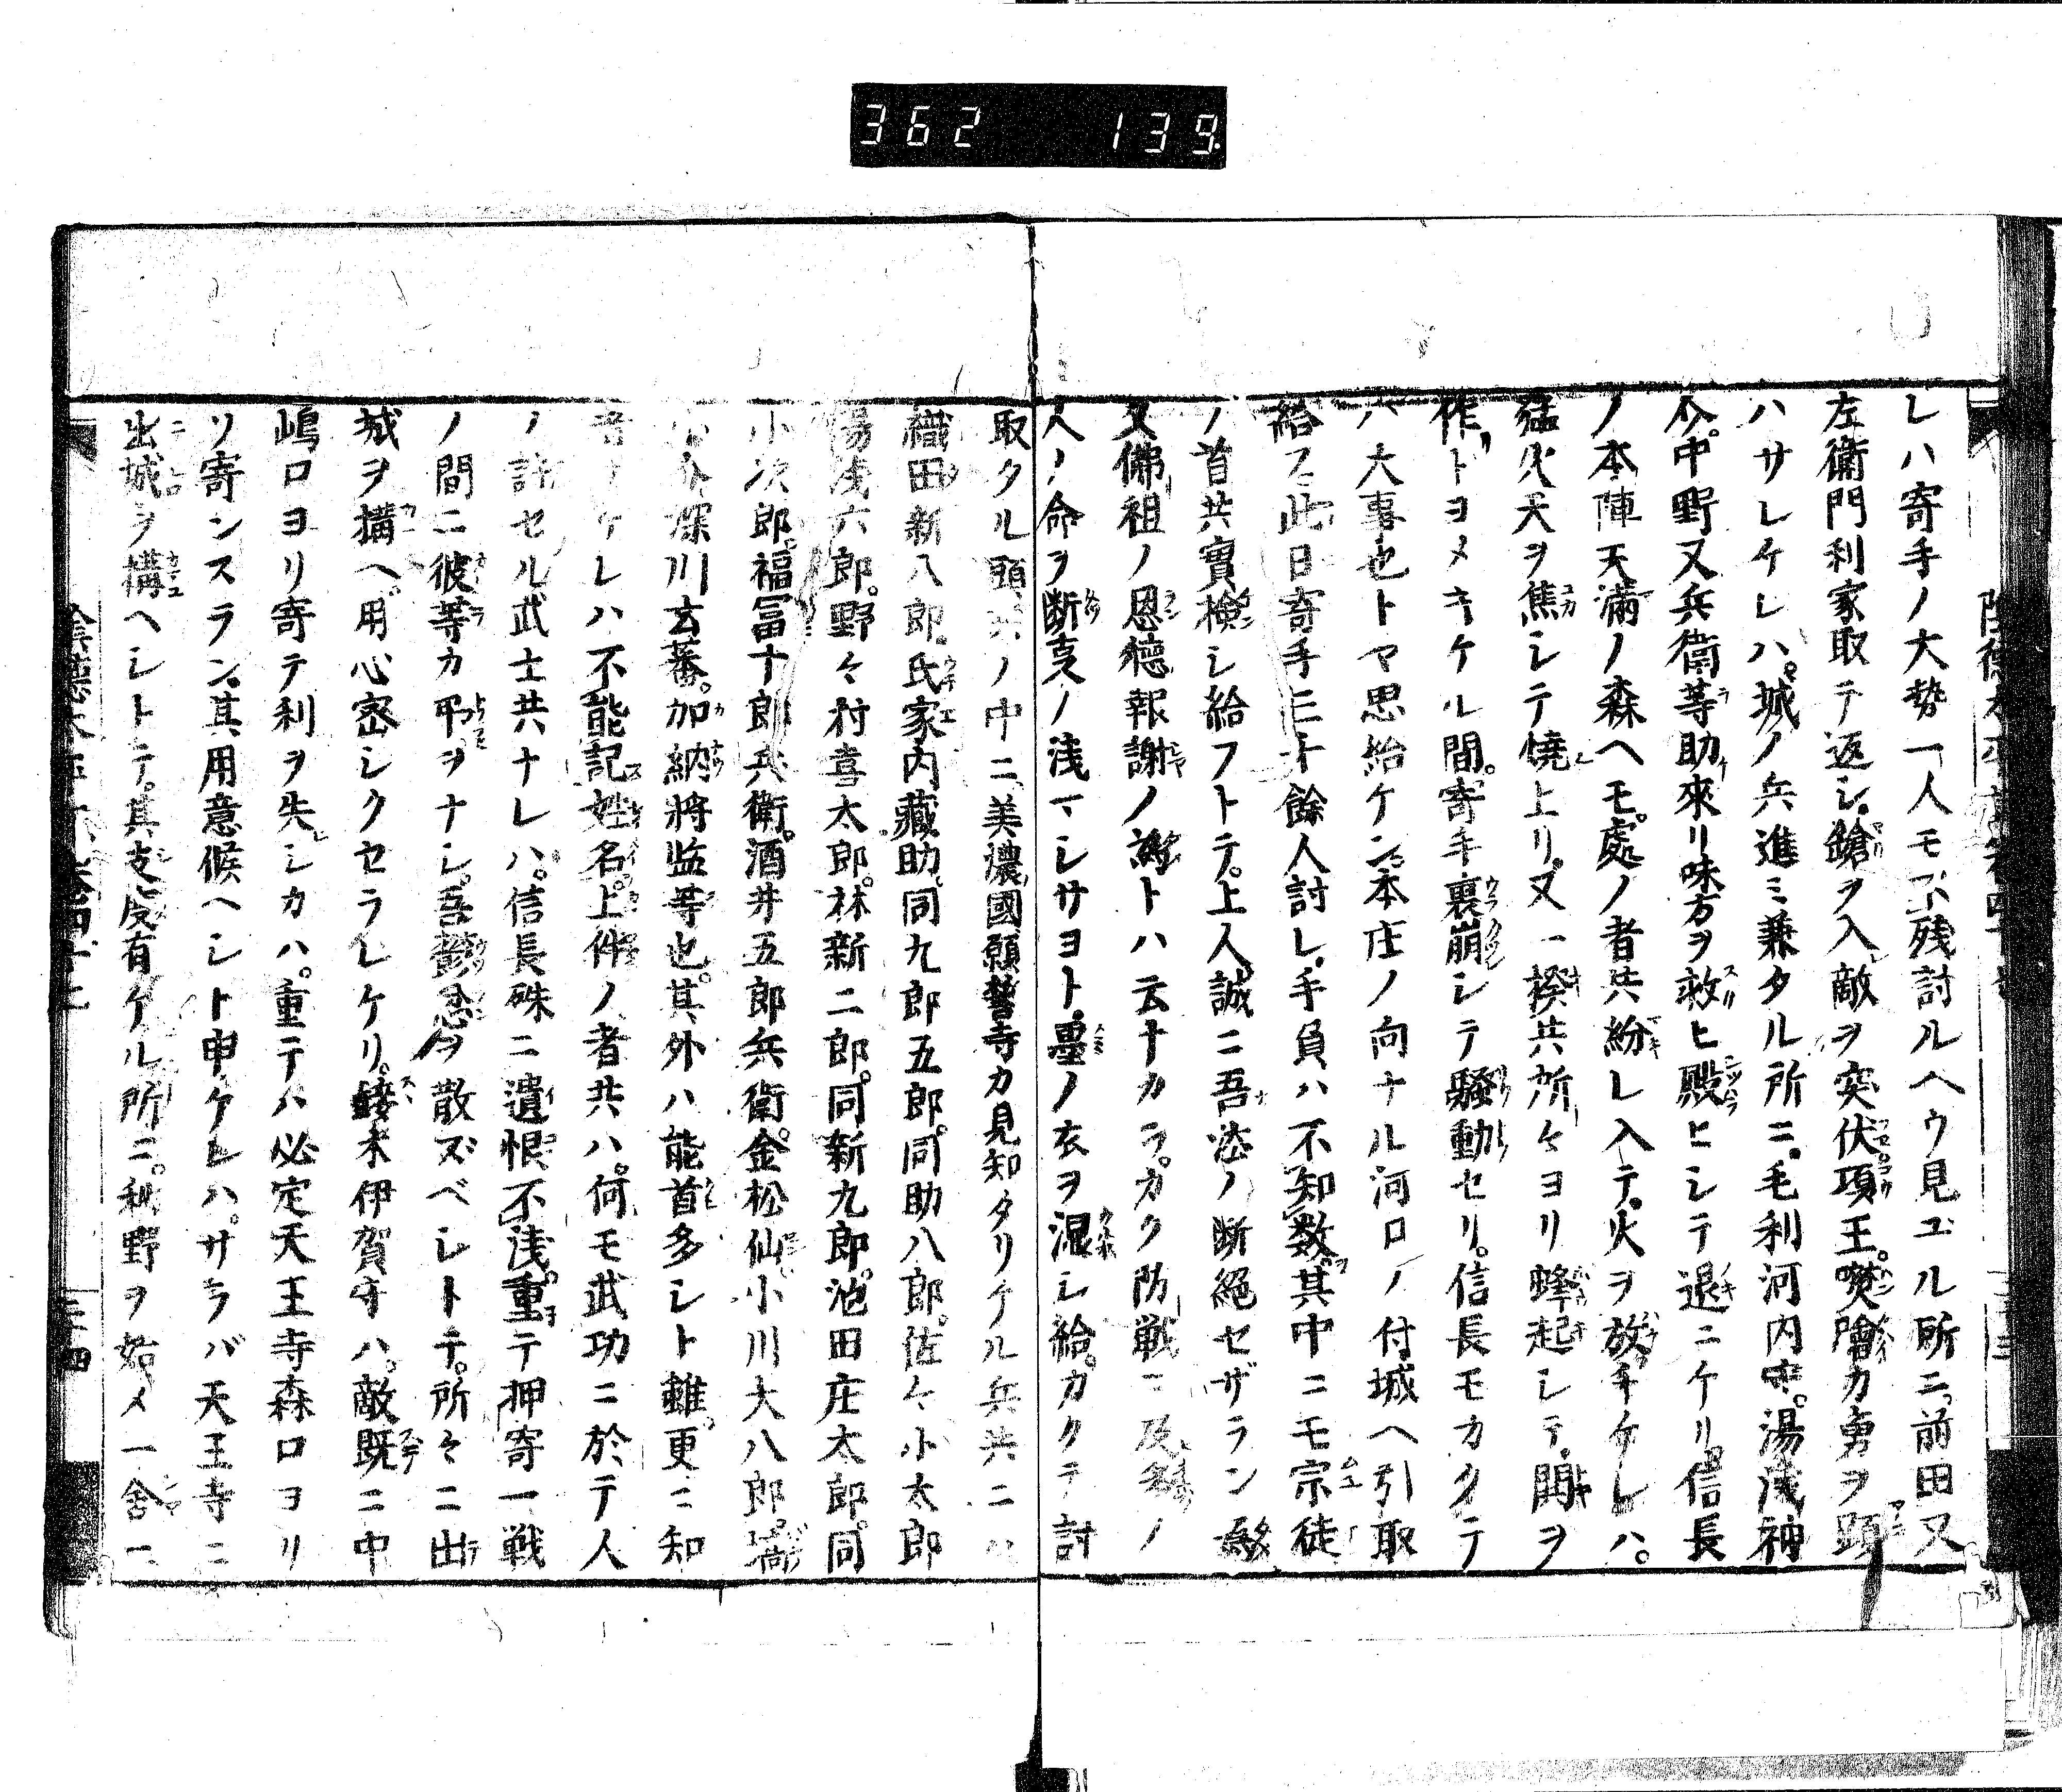 362 139
レハ寄手ノ大勢一人モ不残討ルヘウ見ユル所ニ前田又
左衛門利家取テ返シ鎗ヲ入敵ヲ突伏項王樊噲カ勇ヲ顕
ハサレケレハ。城ノ兵進ミ兼タル所ニ。毛利河内守。湯浅神
介。中野又兵衛等助來リ味方ヲ救ヒ殿ヒシテ退ニケリ。信長
ノ本陣天満ノ森ヘモ。處ノ者共紛レ入テ。火ヲ放チケレハ。
猛火天ヲ焦シテ焼上リ。又一揆共所々ヨリ蜂起シテ。鬨ヲ
作トヨメキケル間。寄手裏崩シテ騒動セリ。信長モカクテ
ハ大事也トヤ思給ケン。本庄ノ向ナル河口ノ付城ヘ引取
給フ。此日寄手三十餘人討レ。手負ハ不知数。其中ニモ宗徒
ノ首共實検シ給フトテ。上人誠ニ吾法ノ断絶セザラン為
又佛祖ノ恩徳報謝ノ為トハ云ナカラ。カク防戦ニ及多ノ
人ノ命ヲ断事ノ浅マシサヨト。墨ノ衣ヲ湿シ給。カクテ討
取タル頭共ノ中ニ美濃國願誓寺カ見知タリケル兵共ニハ
織田新八郎。氏家内藏助。同九郎五郎。同助八郎。佐々小太郎
湯浅六郎。野々村喜太郎。林新二郎。同新九郎。池田庄太郎。同
小次郎。福冨十郎兵衛。酒井五郎兵衛。金松仙。小川大八郎。
深川玄蕃。加納將监等也。其外ハ能首多シト雖。更ニ知
ケレハ不能記姓名。上件ノ者共ハ。何モ武功ニ於テ人
ノ許セル武士共ナレハ。信長殊ニ遺恨不浅。重テ押寄一戦
ノ間ニ彼等カ弔ヲナシ。吾鬱忿ヲ散ズベシトテ。所々ニ出
城ヲ搆ヘ。用心密シクセラレケリ。鈴木伊賀守ハ。敵既ニ中
嶋口ヨリ寄テ利ヲ失シカハ。重テハ必定天王寺森口ヨリ
リ寄ンスラン。其用意候ヘシト申ケレハ。サラバ天王寺ニ
出城ヲ搆ヘシトテ。其支度有ケル所ニ。秋野ヲ始メ一舍一